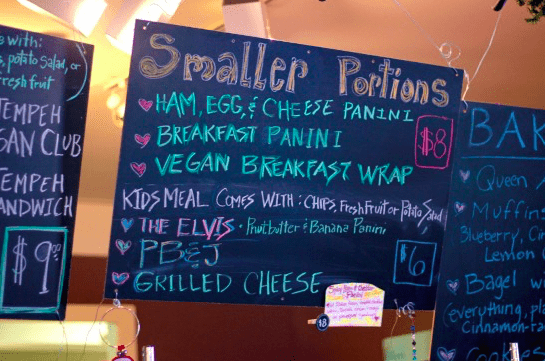 with:
potato Salad, or
fresh fruit
TEMPEH
AN CLUB
TEMPEH
ANDWICH
$9.00
Smaller Portions
HAM, EGG, & CHEESE PANINI
BREAKFAST PANINI
$8
VEGAN BREAKFAST WRAP
KIDS MEAL COMES WITH: CHIPS, FRESH FRUIT or Potato Salad
THE ELVIS: Fruitbutter & Banana Panini
PB&J
$6
GRILLED CHEESE
18
BAK
Queen
Muffins
Blueberry, Cin
Lemon
Bagel wi
(everything, pla
Cinnamon-ra